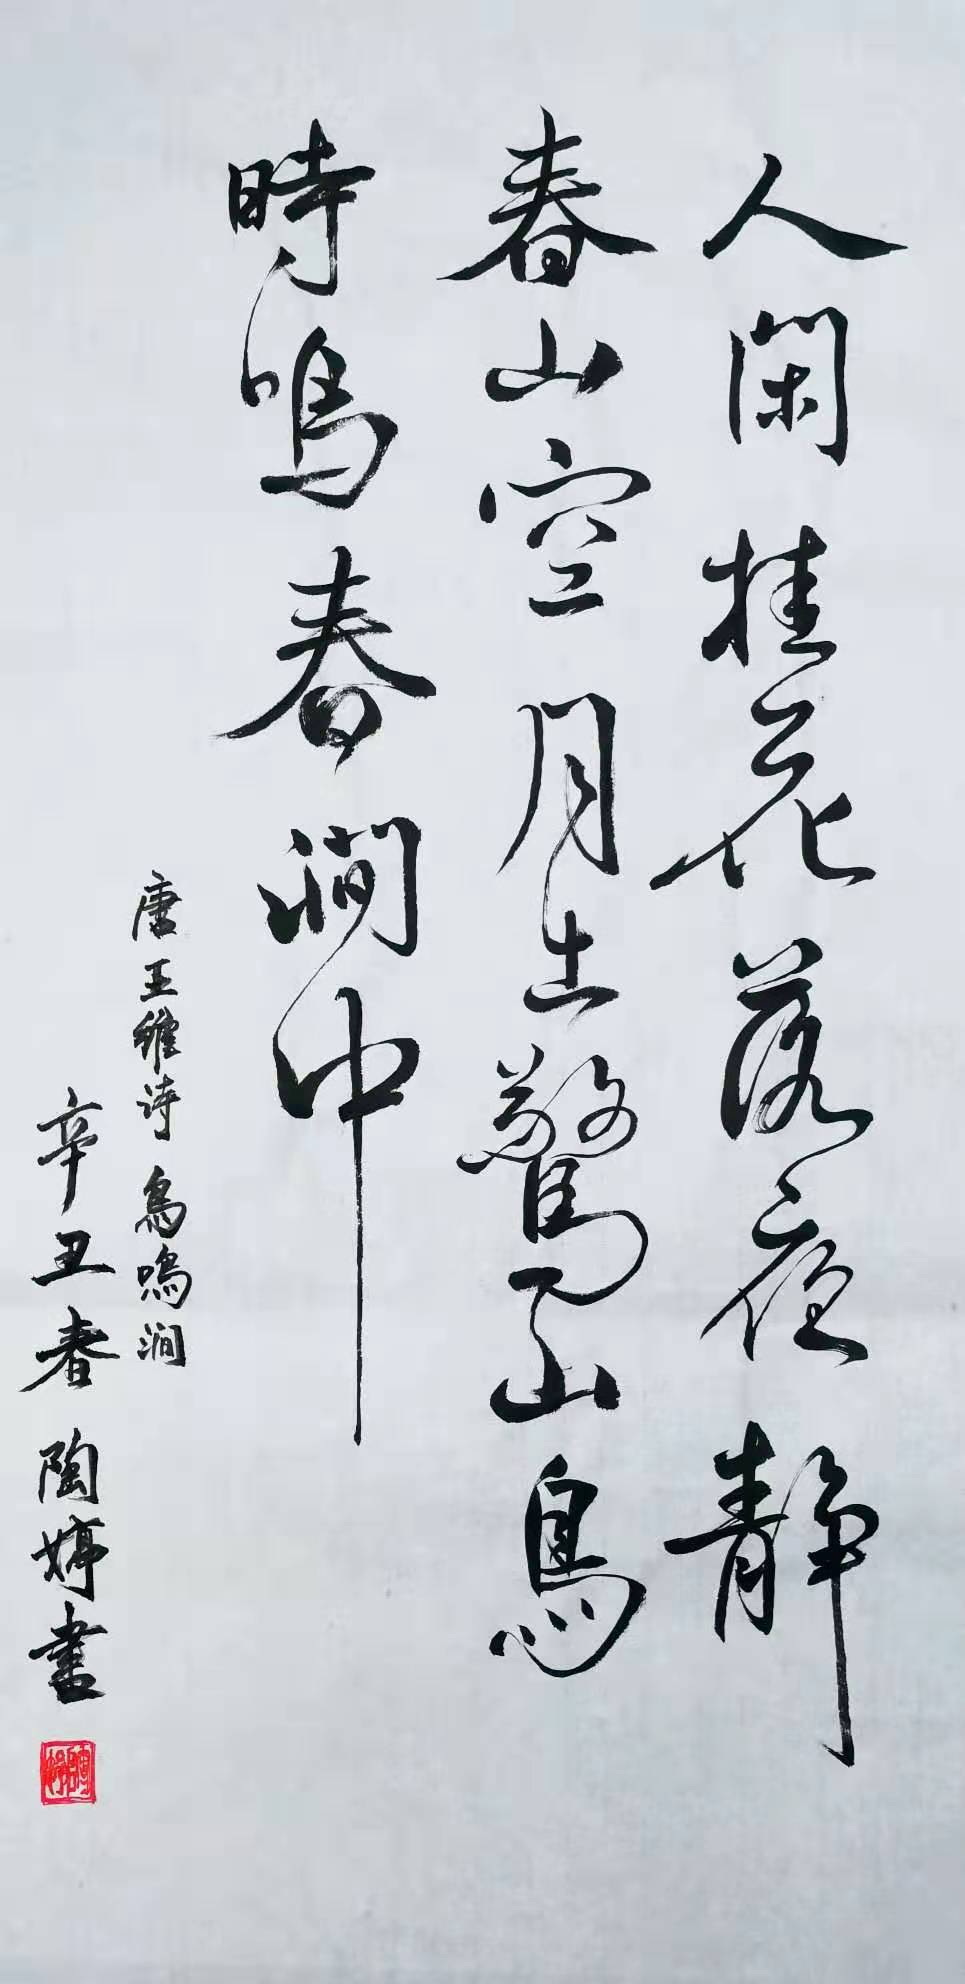 人閑桂花落夜静
春山空月出驚山鳥
時鳴春澗中
唐王維诗鳥鳴澗
辛丑春陶婷書